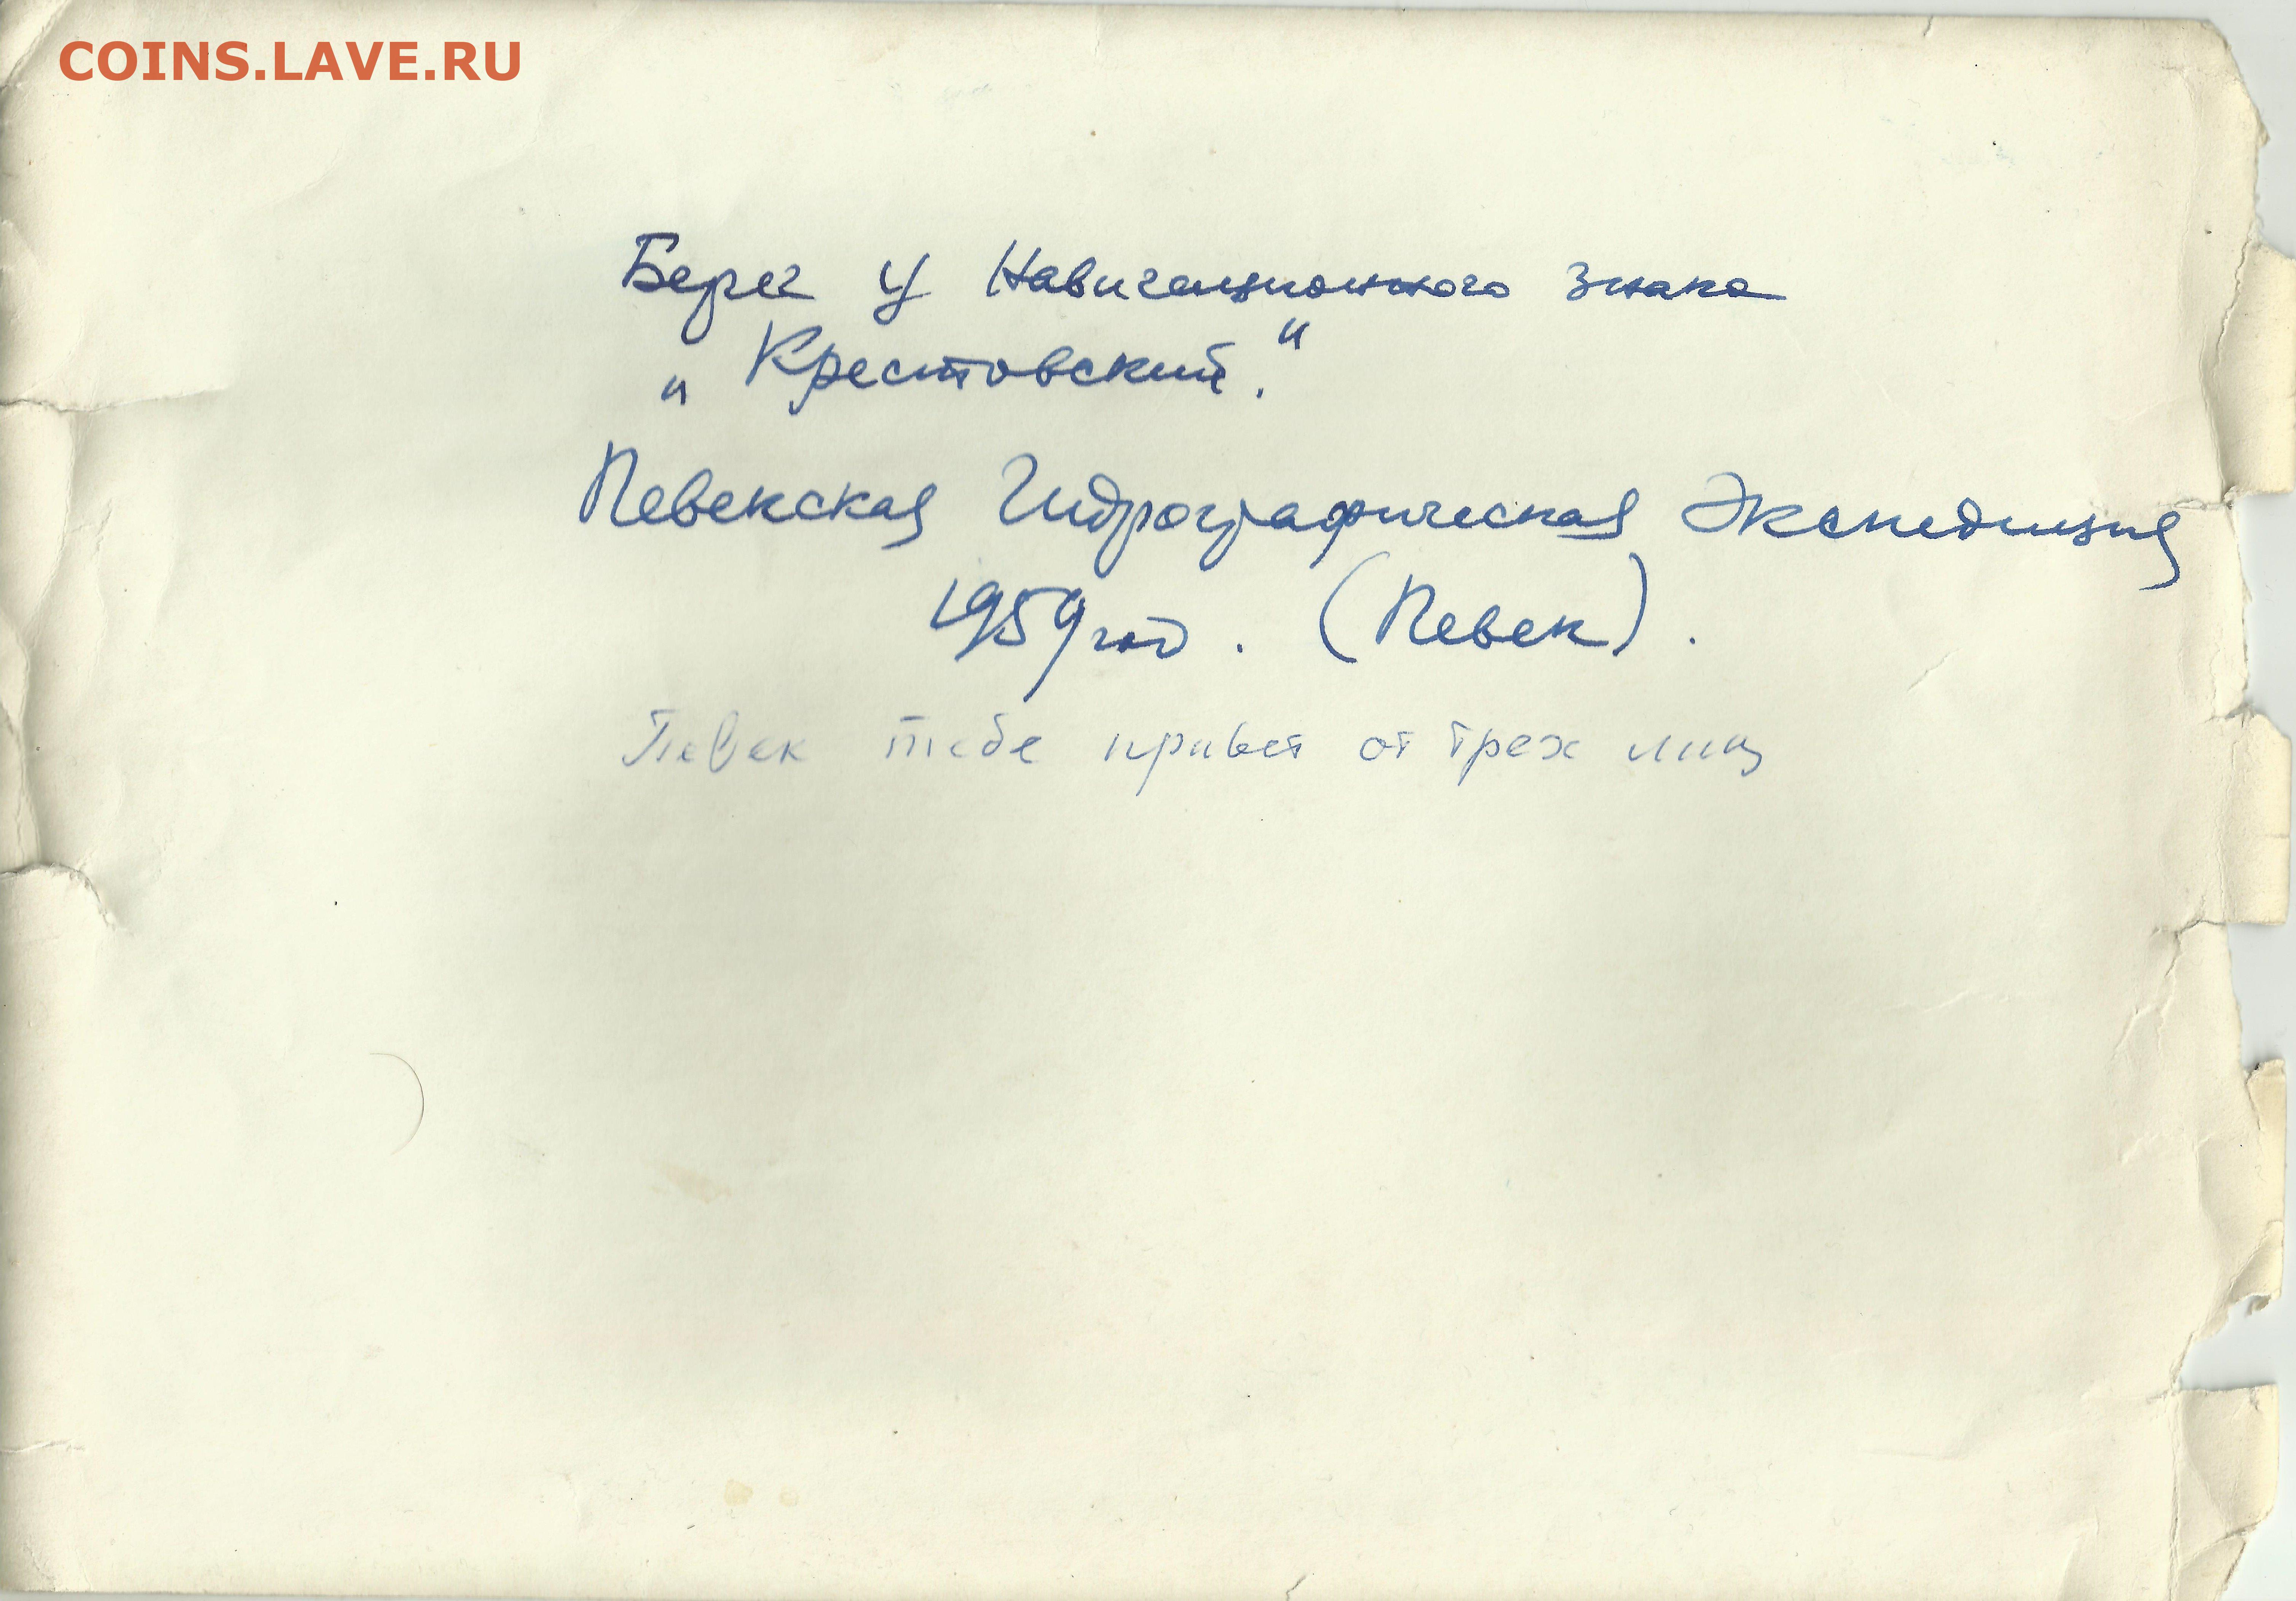 COINS.LAVE.RU
Берег у Навигационного знака
„ Крестовский."
Певекская Гидрографическая Экспедиция
1959 год. (Певек).
Певек тебе привет от трех лиц